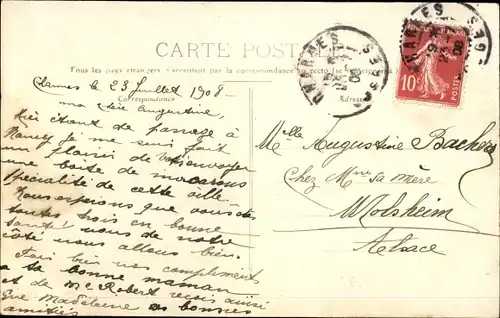 CARTE POSTALE
Tous les pays étrangers n'acceptent pas la correspondance au recto
Correspondance
Adresse
CHARMES
VOSGES
10c
Charmes le 23 Juillet 1908
ma chère Augustine,
Hier étant de passage à
Nancy je me suis fait
un plaisir de t'envoyer
une boite de macarons
spécialité de cette ville.
Nous espérons que vous êtes
toutes trois en bonne
santé; nous de notre
côté nous allons bien.
Fais bien nos compliments
à ta bonne maman
et de Mr Robert aussi
Que Madeleine nos bonnes
amitiés
Melle Augustine
Chez Mme sa mère
Molsheim
Alsace